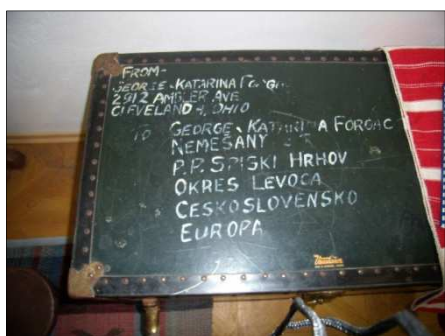 FROM-
GEORGE & KATARINA
2912 AMBLER AVE
CLEVELAND 4, OHIO
TO GEORGE & KATARINA FORGAC
NEMESANY
P.P. SPISKI HRHOV
OKRES LEVOCA
CESKOSLOVENSKO
EUROPA